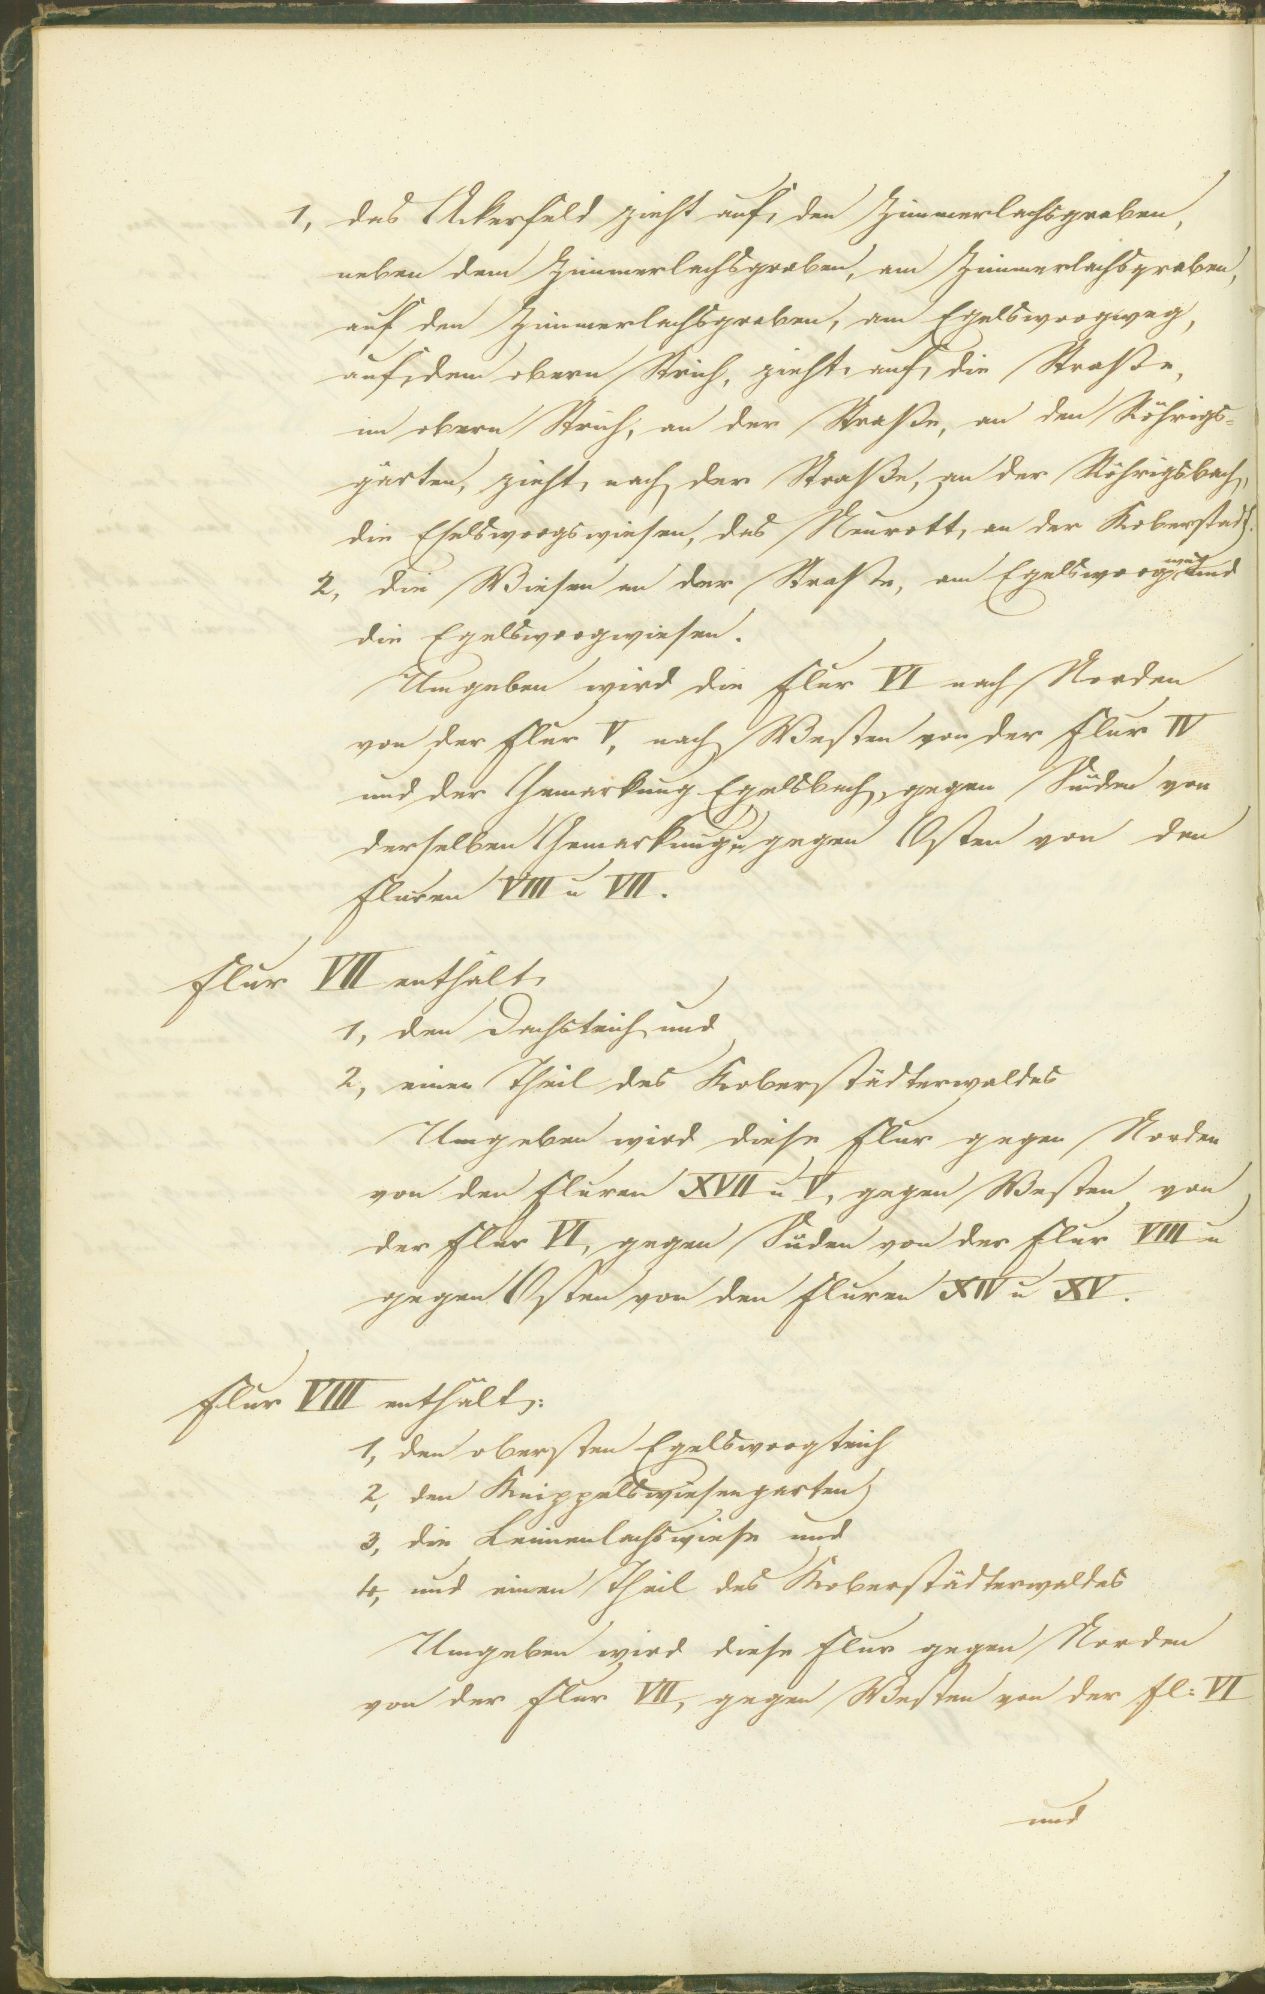 1, das Ackerfeld zieht auf den Zimmerlachsgraben,
neben dem Zimmerlachsgraben, am Zimmerlachsgraben,
auf den Zimmerlachsgraben, am Egelswoogweg,
auf dem obern Strich, zieht auf die Straße,
im obern Strich, an der Straße, an den Röhrigs-
gärten, zieht nach der Straße, an der Röhrigsbach,
die Eselswoogswiesen, das Neurott, an der Koberstadt.
2, die Wiesen an der Straße, am Egelswoogweg und
die Egelswoogwiesen.
Umgeben wird die Flur VI nach Norden
von der Flur V, nach Westen von der Flur IV
und der Gemarkung Egelsbach, gegen Süden von
derselben Gemarkung u gegen Osten von den
Fluren VIII u VII.
Flur VII enthält
1, den Dachsteich und
2, einen Theil des Koberstädterwaldes
Umgeben wird diese Flur gegen Norden
von den Fluren XVII u V, gegen Westen von
der Flur VI, gegen Süden von der Flur VIII u
gegen Osten von den Fluren XIV u XV.
Flur VIII enthält:
1, den obersten Egelswoogteich
2, den Knippelswiesengarten
3, die Leimenlachswiese und
4, und einen Theil des Koberstädterwaldes
Umgeben wird diese Flur gegen Norden
von der Flur VII, gegen Westen von der Fl: VI
und